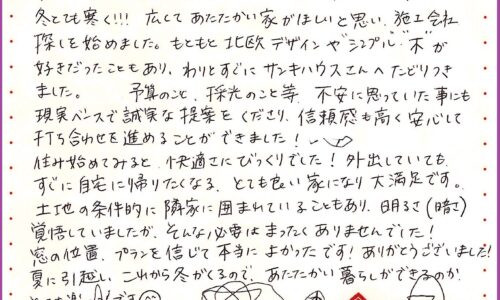 冬とても寒く!!! 広くて あたたかい 家がほしいと思い、施工会社
探しを始めました。もともと 北欧デザイン や "シンプル" "木" が
好きだったこともあり、わりとすぐに サンキハウスさんへ たどりつき
ました。 予算のこと、採光のこと等、不安に思っていた事にも
現実ベースで誠実な提案をくださり、信頼感も高く安心して
打ち合わせを進めることができました!
住み始めてみると、快適さにびっくりでした! 外出していても、
すぐに自宅に帰りたくなる、とても良い家になり大満足です。
土地の条件的に隣家に囲まれていることもあり、明るさ(暗さ)
覚悟していましたが、そんな必要はまったくありませんでした!
窓の位置、プランを信じて本当によかったです! ありがとうございました!
夏に引越し、これから冬がくるので、あたたかい暮らしができるのか